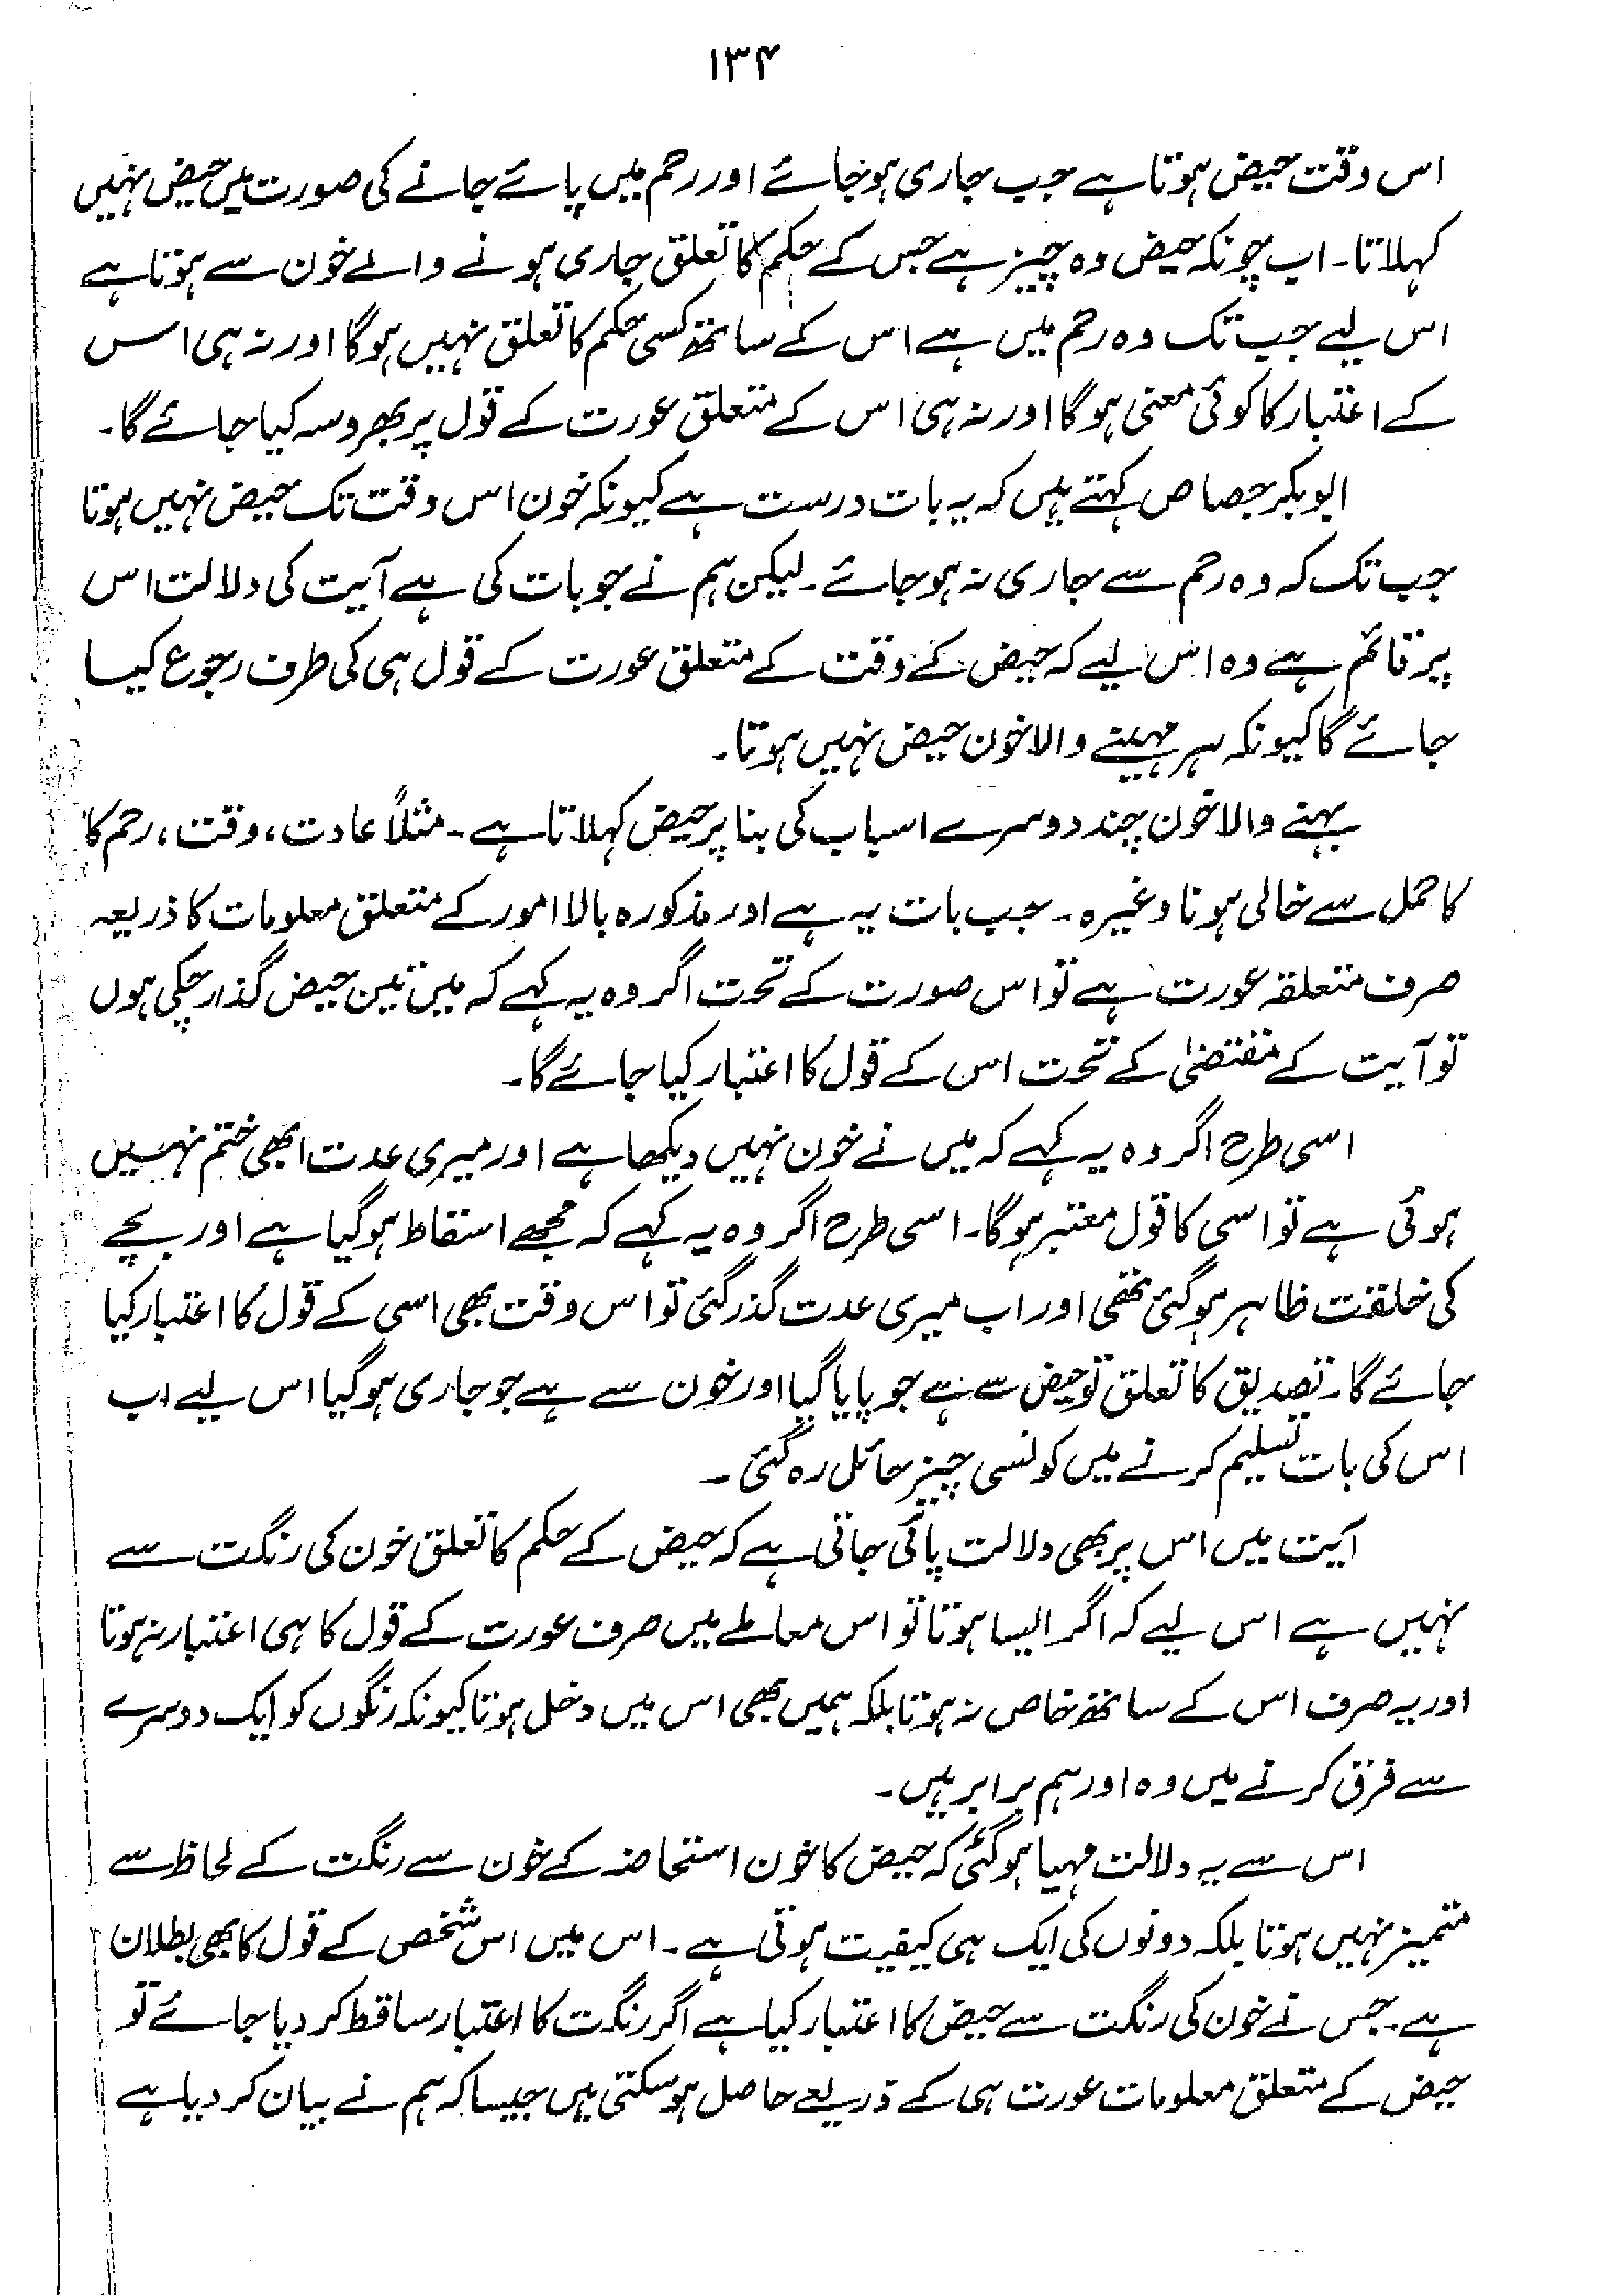 ۱۳۴
اس وقت حیض ہوتا ہے جب جاری ہوجائے اور رحم میں پائے جانے کی صورت میں حیض نہیں
کہلاتا۔ اب چونکہ حیض وہ چیز ہے جس کے حکم کا تعلق جاری ہونے والے خون سے ہوتا ہے
اس لیے جب تک وہ رحم میں ہے اس کے ساتھ کسی حکم کا تعلق نہیں ہوگا اور نہ ہی اس
کے اعتبار کا کوئی معنی ہوگا اور نہ ہی اس کے متعلق عورت کے قول پر بھروسہ کیا جائے گا۔
ابوبکر جصاص کہتے ہیں کہ یہ بات درست ہے کیونکہ خون اس وقت تک حیض نہیں ہوتا
جب تک کہ وہ رحم سے جاری نہ ہوجائے۔ لیکن ہم نے جو بات کی ہے آیت کی دلالت اس
پر قائم ہے وہ اس لیے کہ حیض کے وقت کے متعلق عورت کے قول ہی کی طرف رجوع کیا
جائے گا کیونکہ ہر بہنے والا خون حیض نہیں ہوتا۔
بہنے والا خون چند دوسرے اسباب کی بنا پر حیض کہلاتا ہے۔ مثلاً عادت، وقت، رحم کا
کا حمل سے خالی ہونا وغیرہ۔ جب بات یہ ہے اور مذکورہ بالا امور کے متعلق معلومات کا ذریعہ
صرف متعلقہ عورت ہے تو اس صورت کے تحت اگر وہ یہ کہے کہ میں تین حیض گذار چکی ہوں
تو آیت کے مقتضیٰ کے تحت اس کے قول کا اعتبار کیا جائے گا۔
اسی طرح اگر وہ یہ کہے کہ میں نے خون نہیں دیکھا ہے اور میری عدت ابھی ختم نہیں
ہوئی ہے تو اسی کا قول معتبر ہوگا۔ اسی طرح اگر وہ یہ کہے کہ مجھے اسقاط ہوگیا ہے اور بچے
کی خلقت ظاہر ہوگئی تھی اور اب میری عدت گذر گئی تو اس وقت بھی اسی کے قول کا اعتبار کیا
جائے گا۔ تصدیق کا تعلق تو حیض سے ہے جو پایا گیا اور خون سے ہے جو جاری ہوگیا اس لیے اب
اس کی بات تسلیم کرنے میں کونسی چیز حائل رہ گئی۔
آیت میں اس پر بھی دلالت پائی جاتی ہے کہ حیض کے حکم کا تعلق خون کی رنگت سے
نہیں ہے اس لیے کہ اگر ایسا ہوتا تو اس معاملے میں صرف عورت کے قول کا ہی اعتبار نہ ہوتا
اور یہ صرف اس کے ساتھ خاص نہ ہوتا بلکہ ہمیں بھی اس میں دخل ہوتا کیونکہ رنگوں کو ایک دوسرے
سے فرق کرنے میں وہ اور ہم برابر ہیں۔
اس سے یہ دلالت مہیا ہوگئی کہ حیض کا خون استحاضہ کے خون سے رنگت کے لحاظ سے
متمیز نہیں ہوتا بلکہ دونوں کی ایک ہی کیفیت ہوتی ہے۔ اس میں اس شخص کے قول کا بھی بطلان
ہے۔ جس نے خون کی رنگت سے حیض کا اعتبار کیا ہے اگر رنگت کا اعتبار ساقط کر دیا جائے تو
حیض کے متعلق معلومات عورت ہی کے ذریعے حاصل ہوسکتی ہیں جیسا کہ ہم نے بیان کر دیا ہے